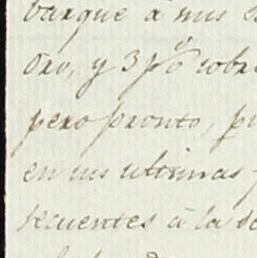 barque à mis
oro, y 3 pº sobre
pero pronto,
en sus ultimas
secuentes á la